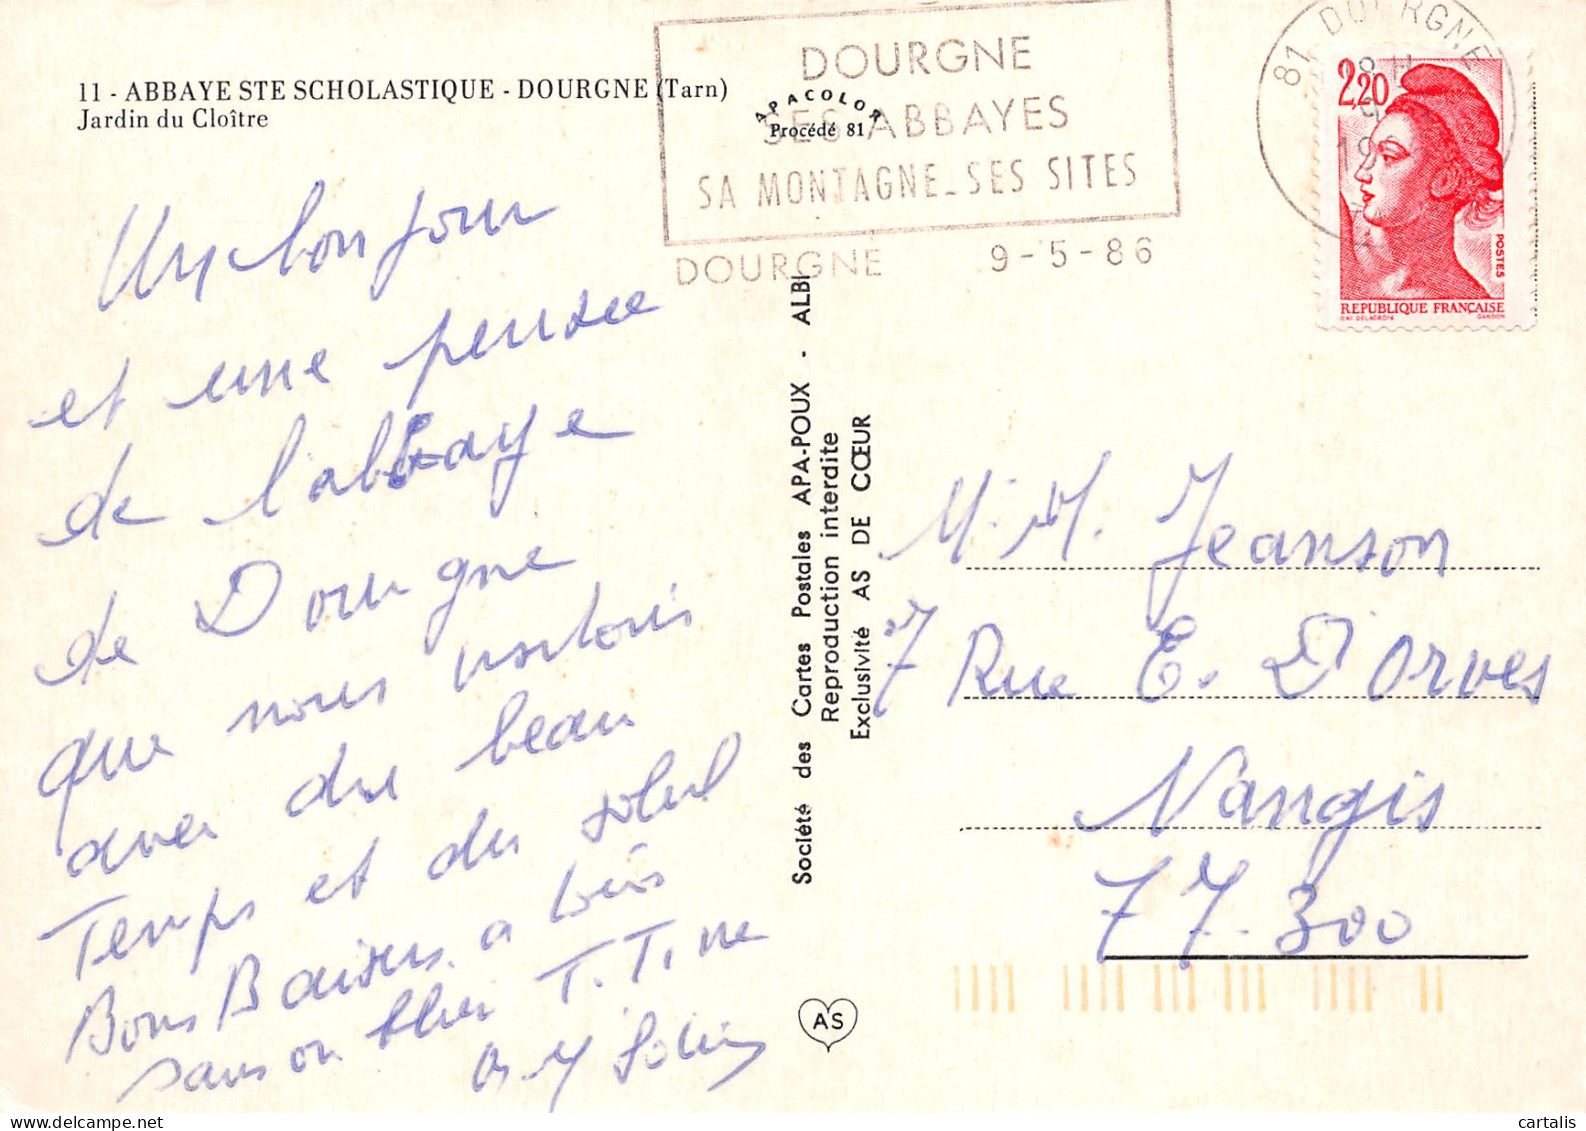 11 - ABBAYE STE SCHOLASTIQUE - DOURGNE (Tarn)
Jardin du Cloître
APACOLOR
Procédé 81
DOURGNE
SES ABBAYES
SA MONTAGNE_SES SITES
DOURGNE 9-5-86
81 DOURGNE
2,20
POSTES
REPUBLIQUE FRANÇAISE
D'AP. DELACROIX GANDON
Un bonjour
et une pensée
de l'abbaye
de Dourgne
que nous visitons
avec du beau
Temps et du soleil
Bons Baisers a tous
sans oublier T. Tine
Société des Cartes Postales APA-POUX - ALBI
Reproduction interdite
Exclusivité AS DE CŒUR
M. M. Jeanson
7 Rue E. D'orves
Nangis
77.300
AS
cartalis